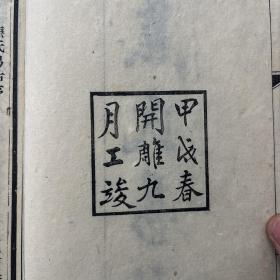 甲戌春
開雕九
月工竣